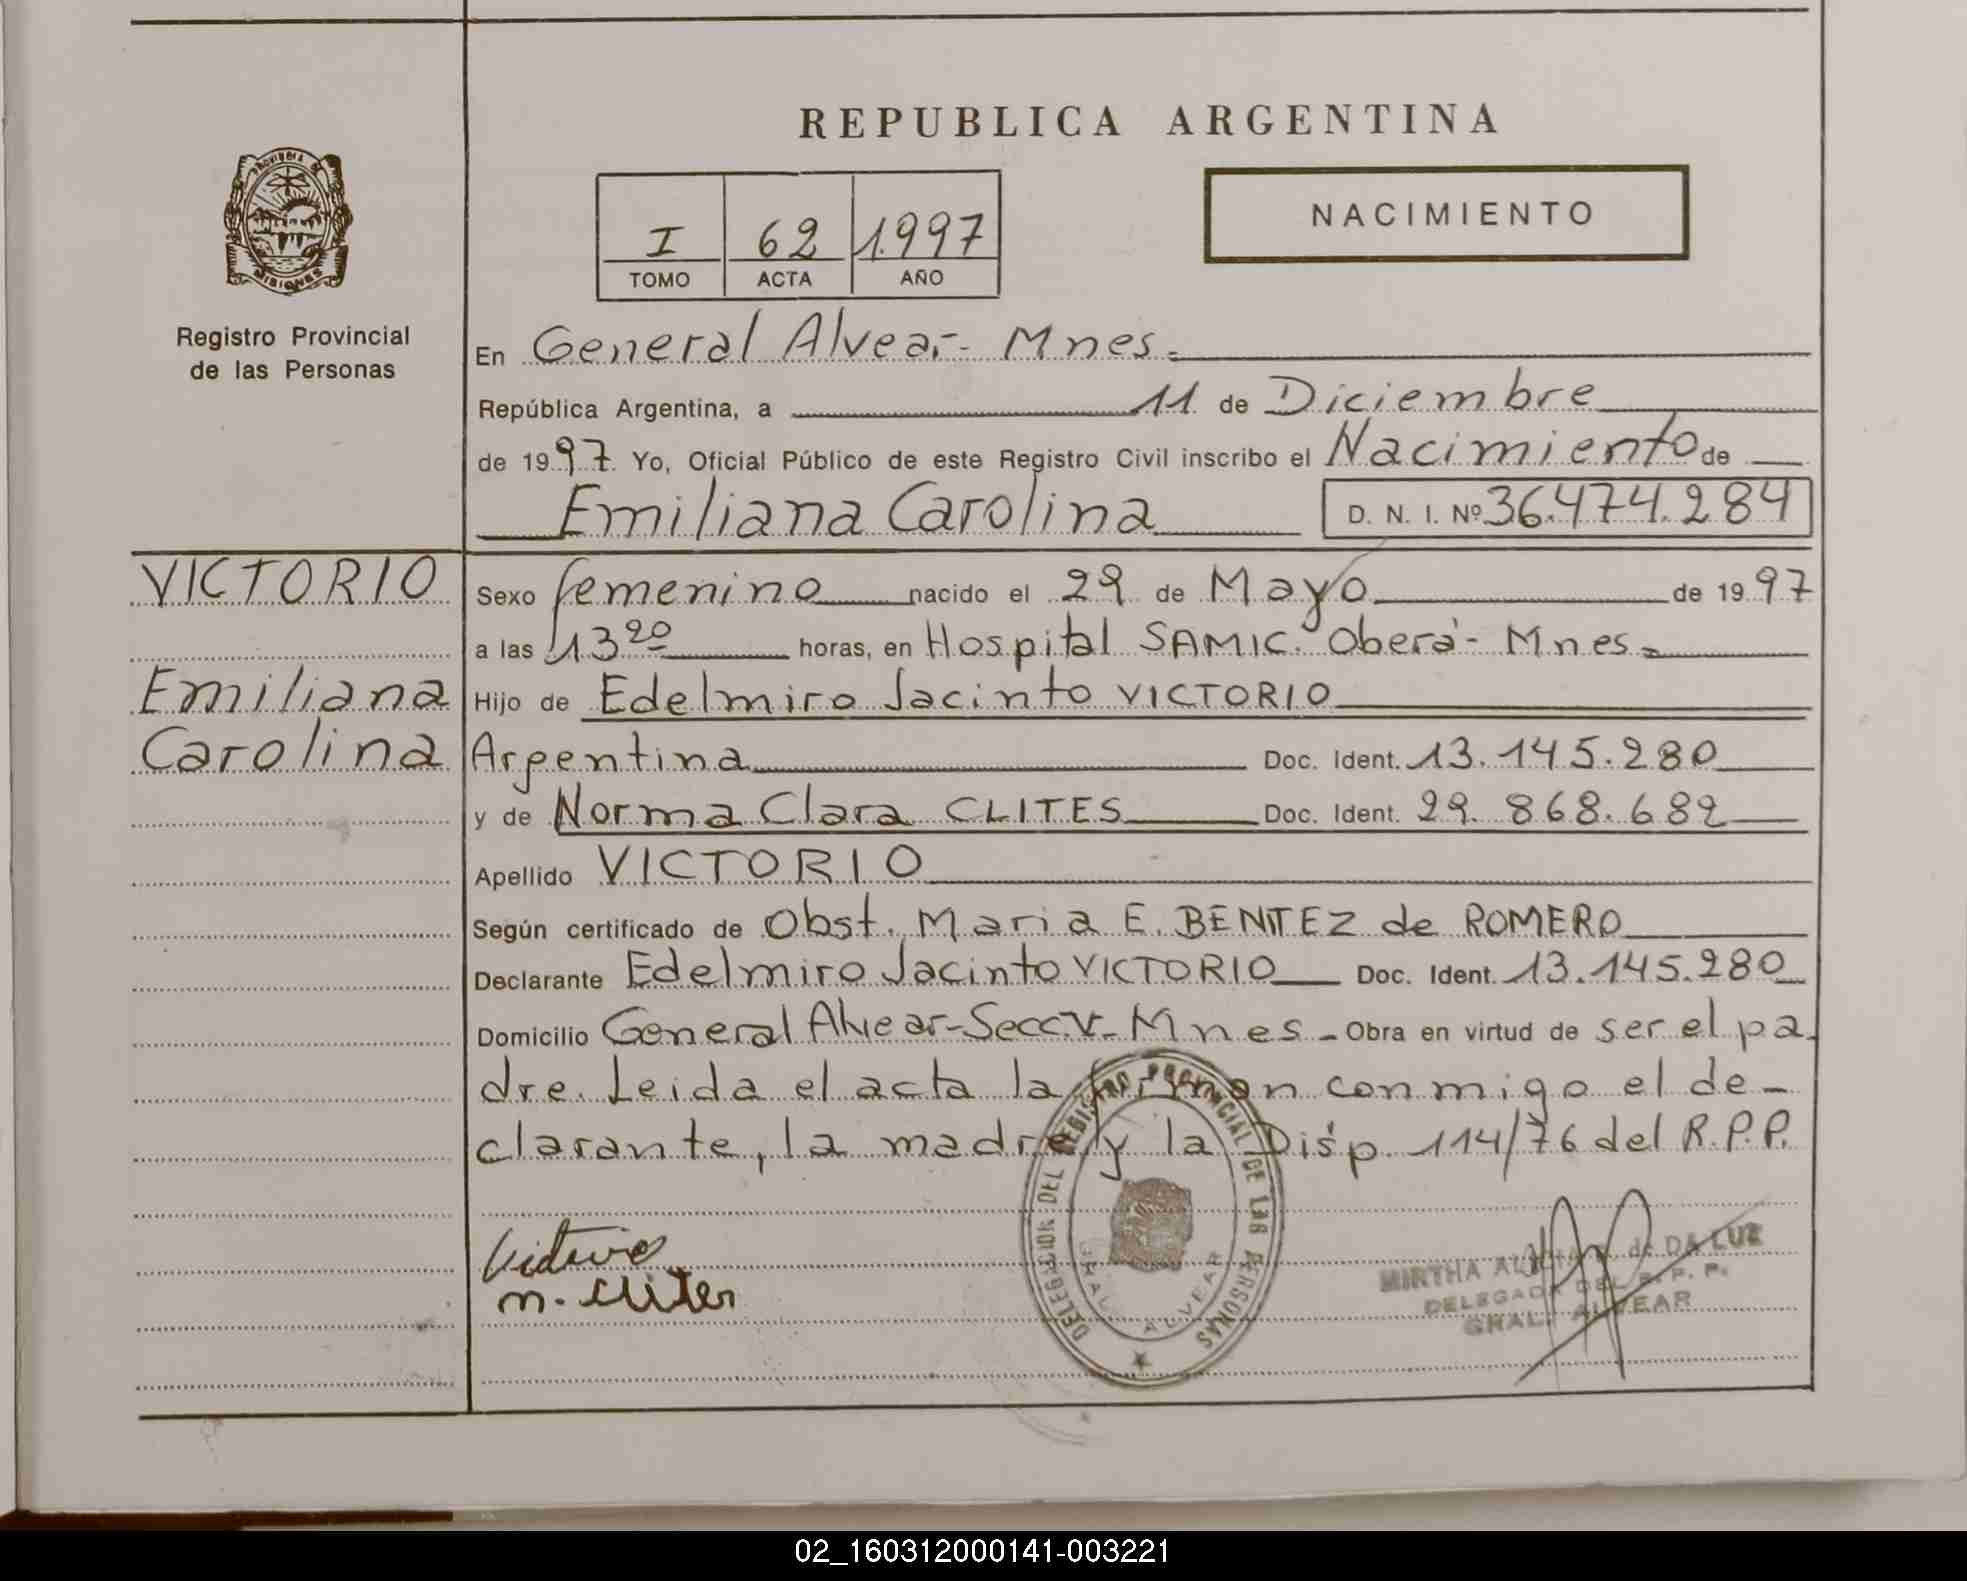 REPUBLICA ARGENTINA
PROVINCIA DE
MISIONES
Registro Provincial
de las Personas
I 62 1.997
TOMO ACTA AÑO
NACIMIENTO
En General Alvear- Mnes.
República Argentina, a 11 de Diciembre
de 1997. Yo, Oficial Público de este Registro Civil inscribo el Nacimiento de
Emiliana Carolina D. N. I. Nº 36.474.284
VICTORIO
Emiliana
Carolina
Sexo femenino nacido el 29 de Mayo de 1997
a las 13 20 horas, en Hospital SAMIC. Oberá- Mnes.
Hijo de Edelmiro Jacinto VICTORIO
Argentina Doc. Ident. 13.145.280
y de Norma Clara CLITES Doc. Ident. 29.868.682
Apellido VICTORIO
Según certificado de Obst. Maria E. BENITEZ de ROMERO
Declarante Edelmiro Jacinto VICTORIO Doc. Ident. 13.145.280
Domicilio General Alvear-Secc.V-Mnes - Obra en virtud de ser el pa-
dre. Leida el acta la firman conmigo el de-
clarante, la madre y la Disp. 114/76 del R.P.P.
Victorio
n. Clites
DELEGACION DEL REGISTRO PROVINCIAL DE LAS PERSONAS
GRAL. ALVEAR
MIRTHA de DA LUZ
DELEGADA DEL R. P. P.
GRAL. ALVEAR
02_160312000141-003221